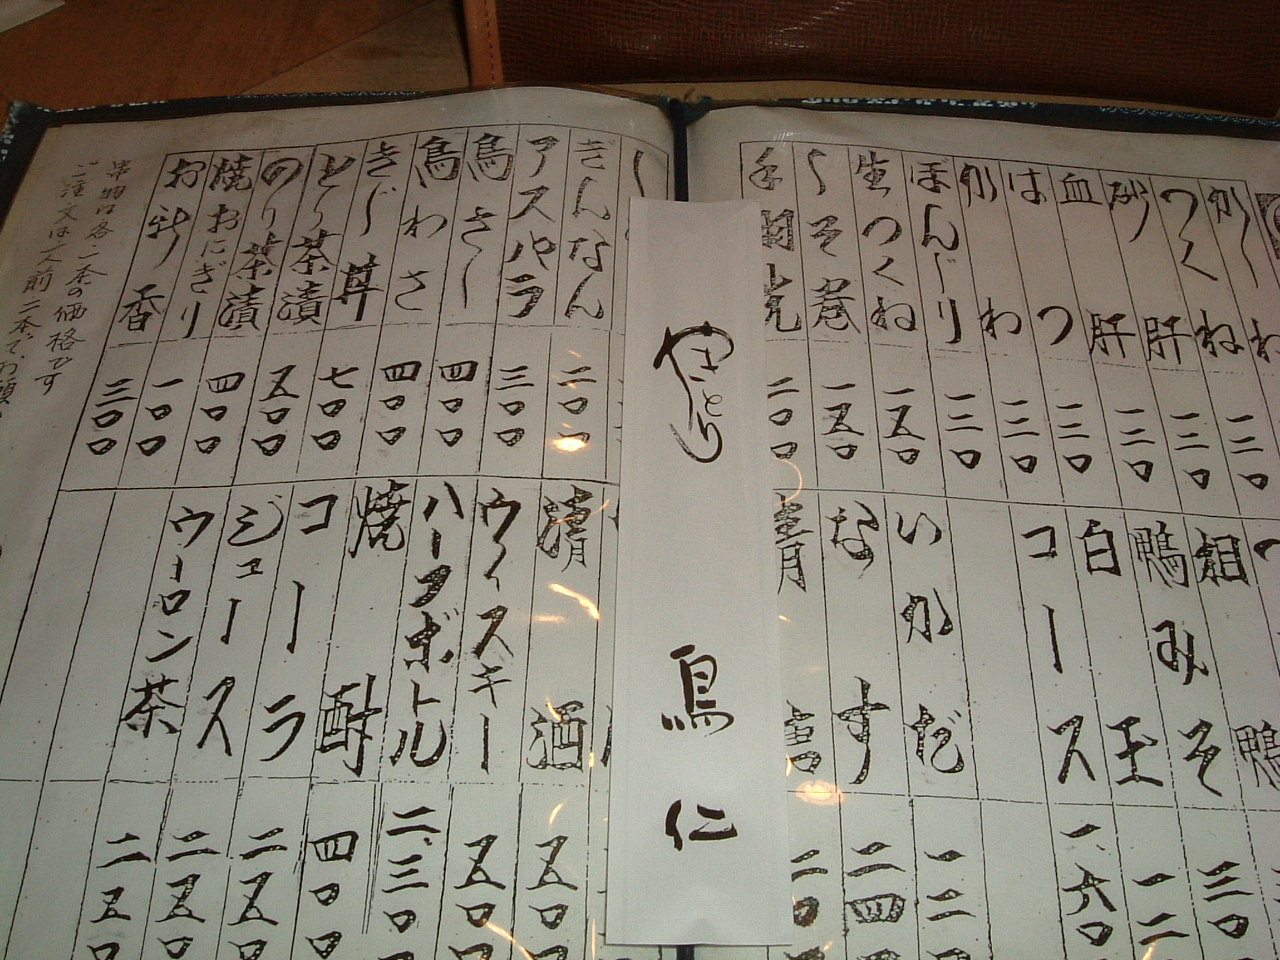 つくね
つく肝
砂肝
血つ
はつ
かわ
ぼんじり
生つくね
しそ巻
手羽先
一三〇
一三〇
一三〇
一三〇
一三〇
一三〇
一五〇
一五〇
二〇〇
鴨
相鴨みそ
白玉
コース
いかだ
なす
青唐
三〇
一二
一、六〇
一二
二四
二〇
やきとり
鳥仁
ぎんなん
アスパラ
鳥さし
鳥わさ
きじ丼
とり茶漬
のり茶漬
焼おにぎり
お新香
二〇〇
三〇〇
四〇〇
四〇〇
七〇〇
五〇〇
四〇〇
一〇〇
三〇〇
清酒
ウィスキー
ハーフボトル
焼酎
コーラ
ジュース
ウーロン茶
五〇
五〇
二、三〇
四〇〇
二五〇
二五〇
二五〇
串物は各一本の価格です
ご注文は一人前二本でお願い